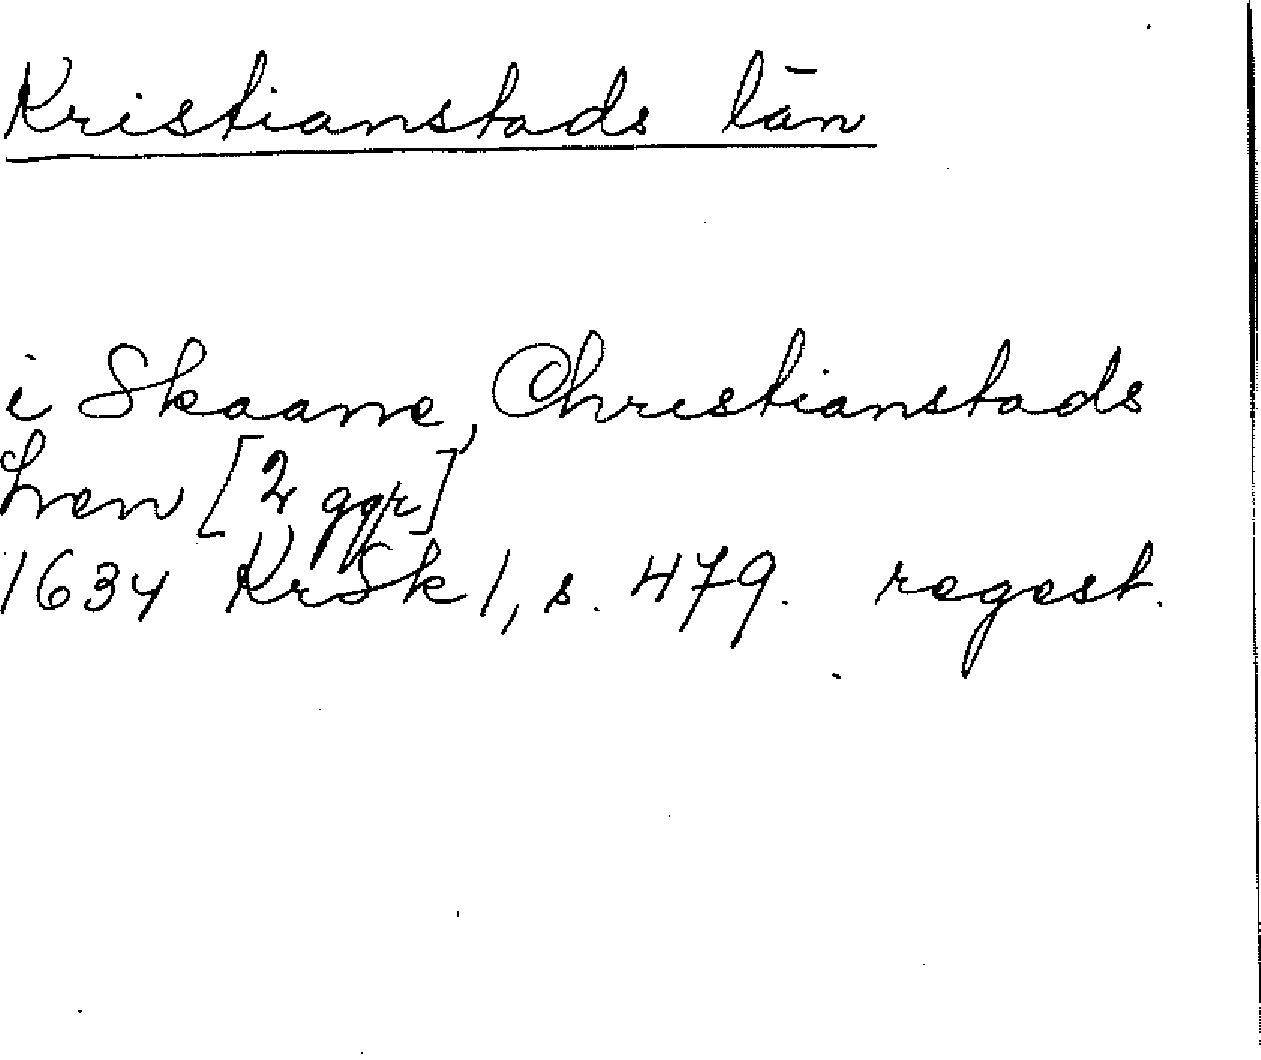 Kristianstads län
i Skaane, Christianstads
Lœen [2 ggr]
1634 KrSk 1, s. 479. regest.